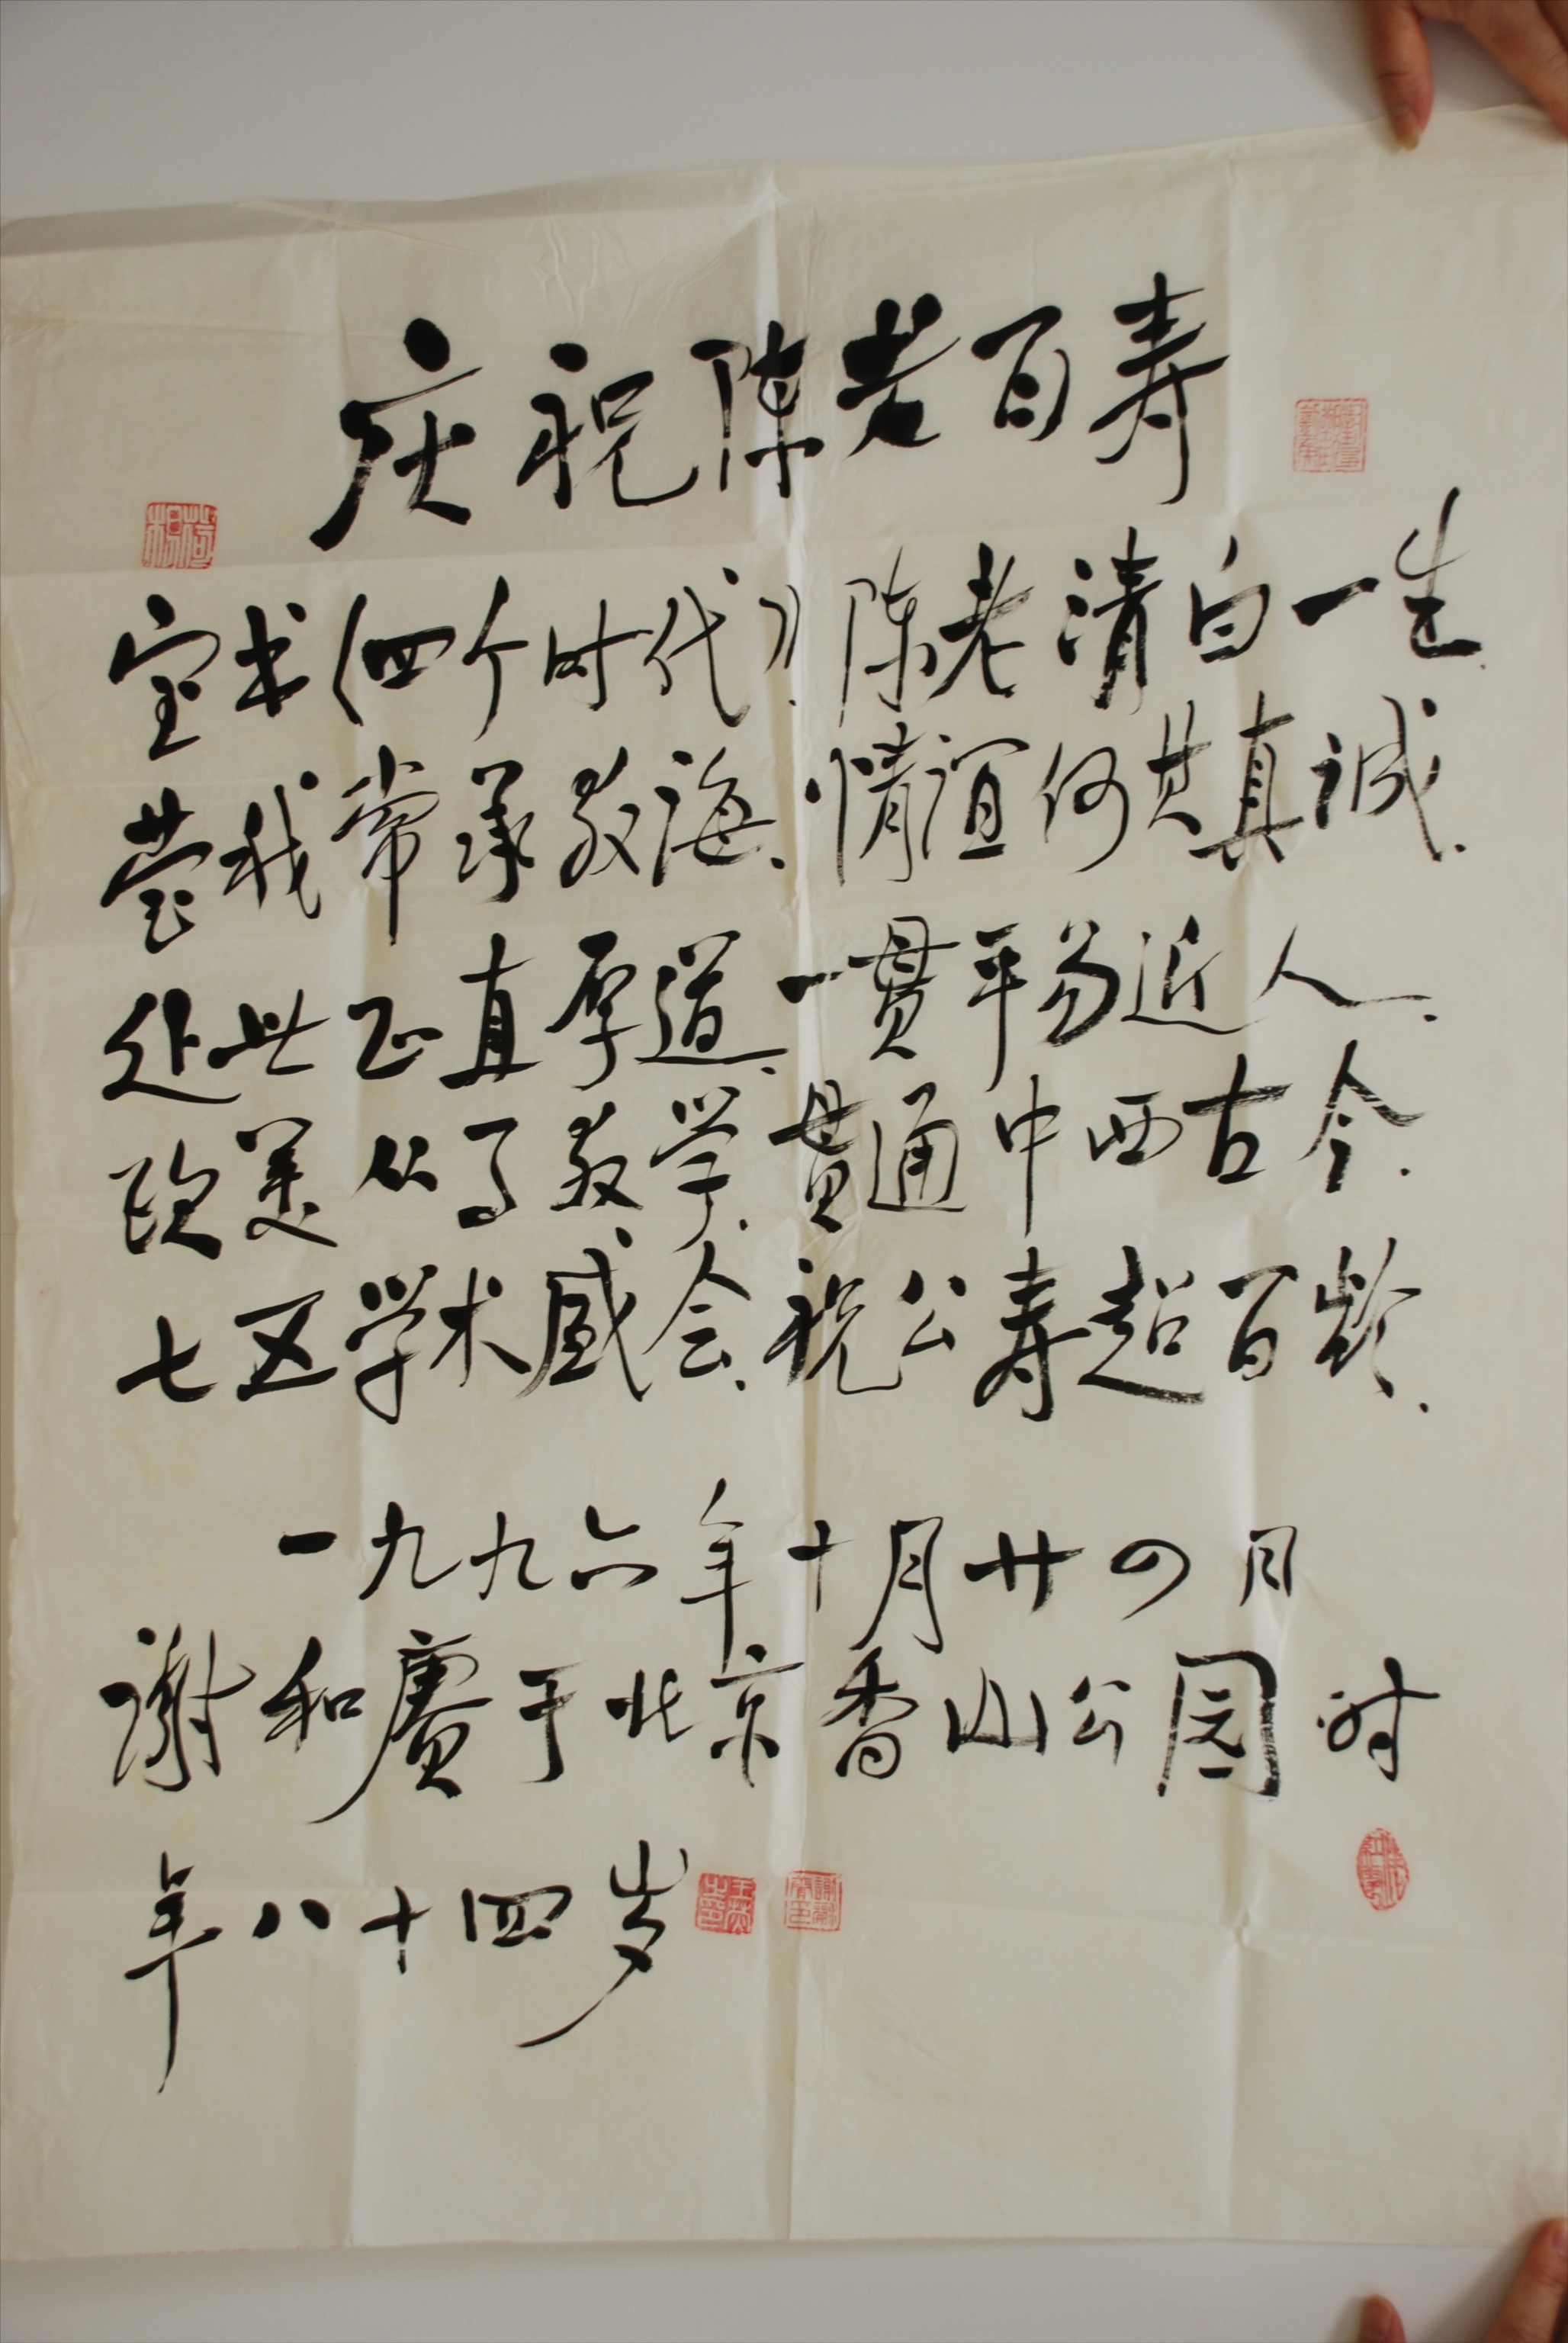 庆祝陈老百寿
宝书《四个时代》，陈老清白一生，
莹我常承教诲，情谊何其真诚，
处世正直厚道，一贯平易近人，
欧美从事教学，贯通中西古今，
七五学术盛会，祝公寿超百龄，
一九九六年十月廿四日
谢和赓于北京香山公园时
年八十四岁